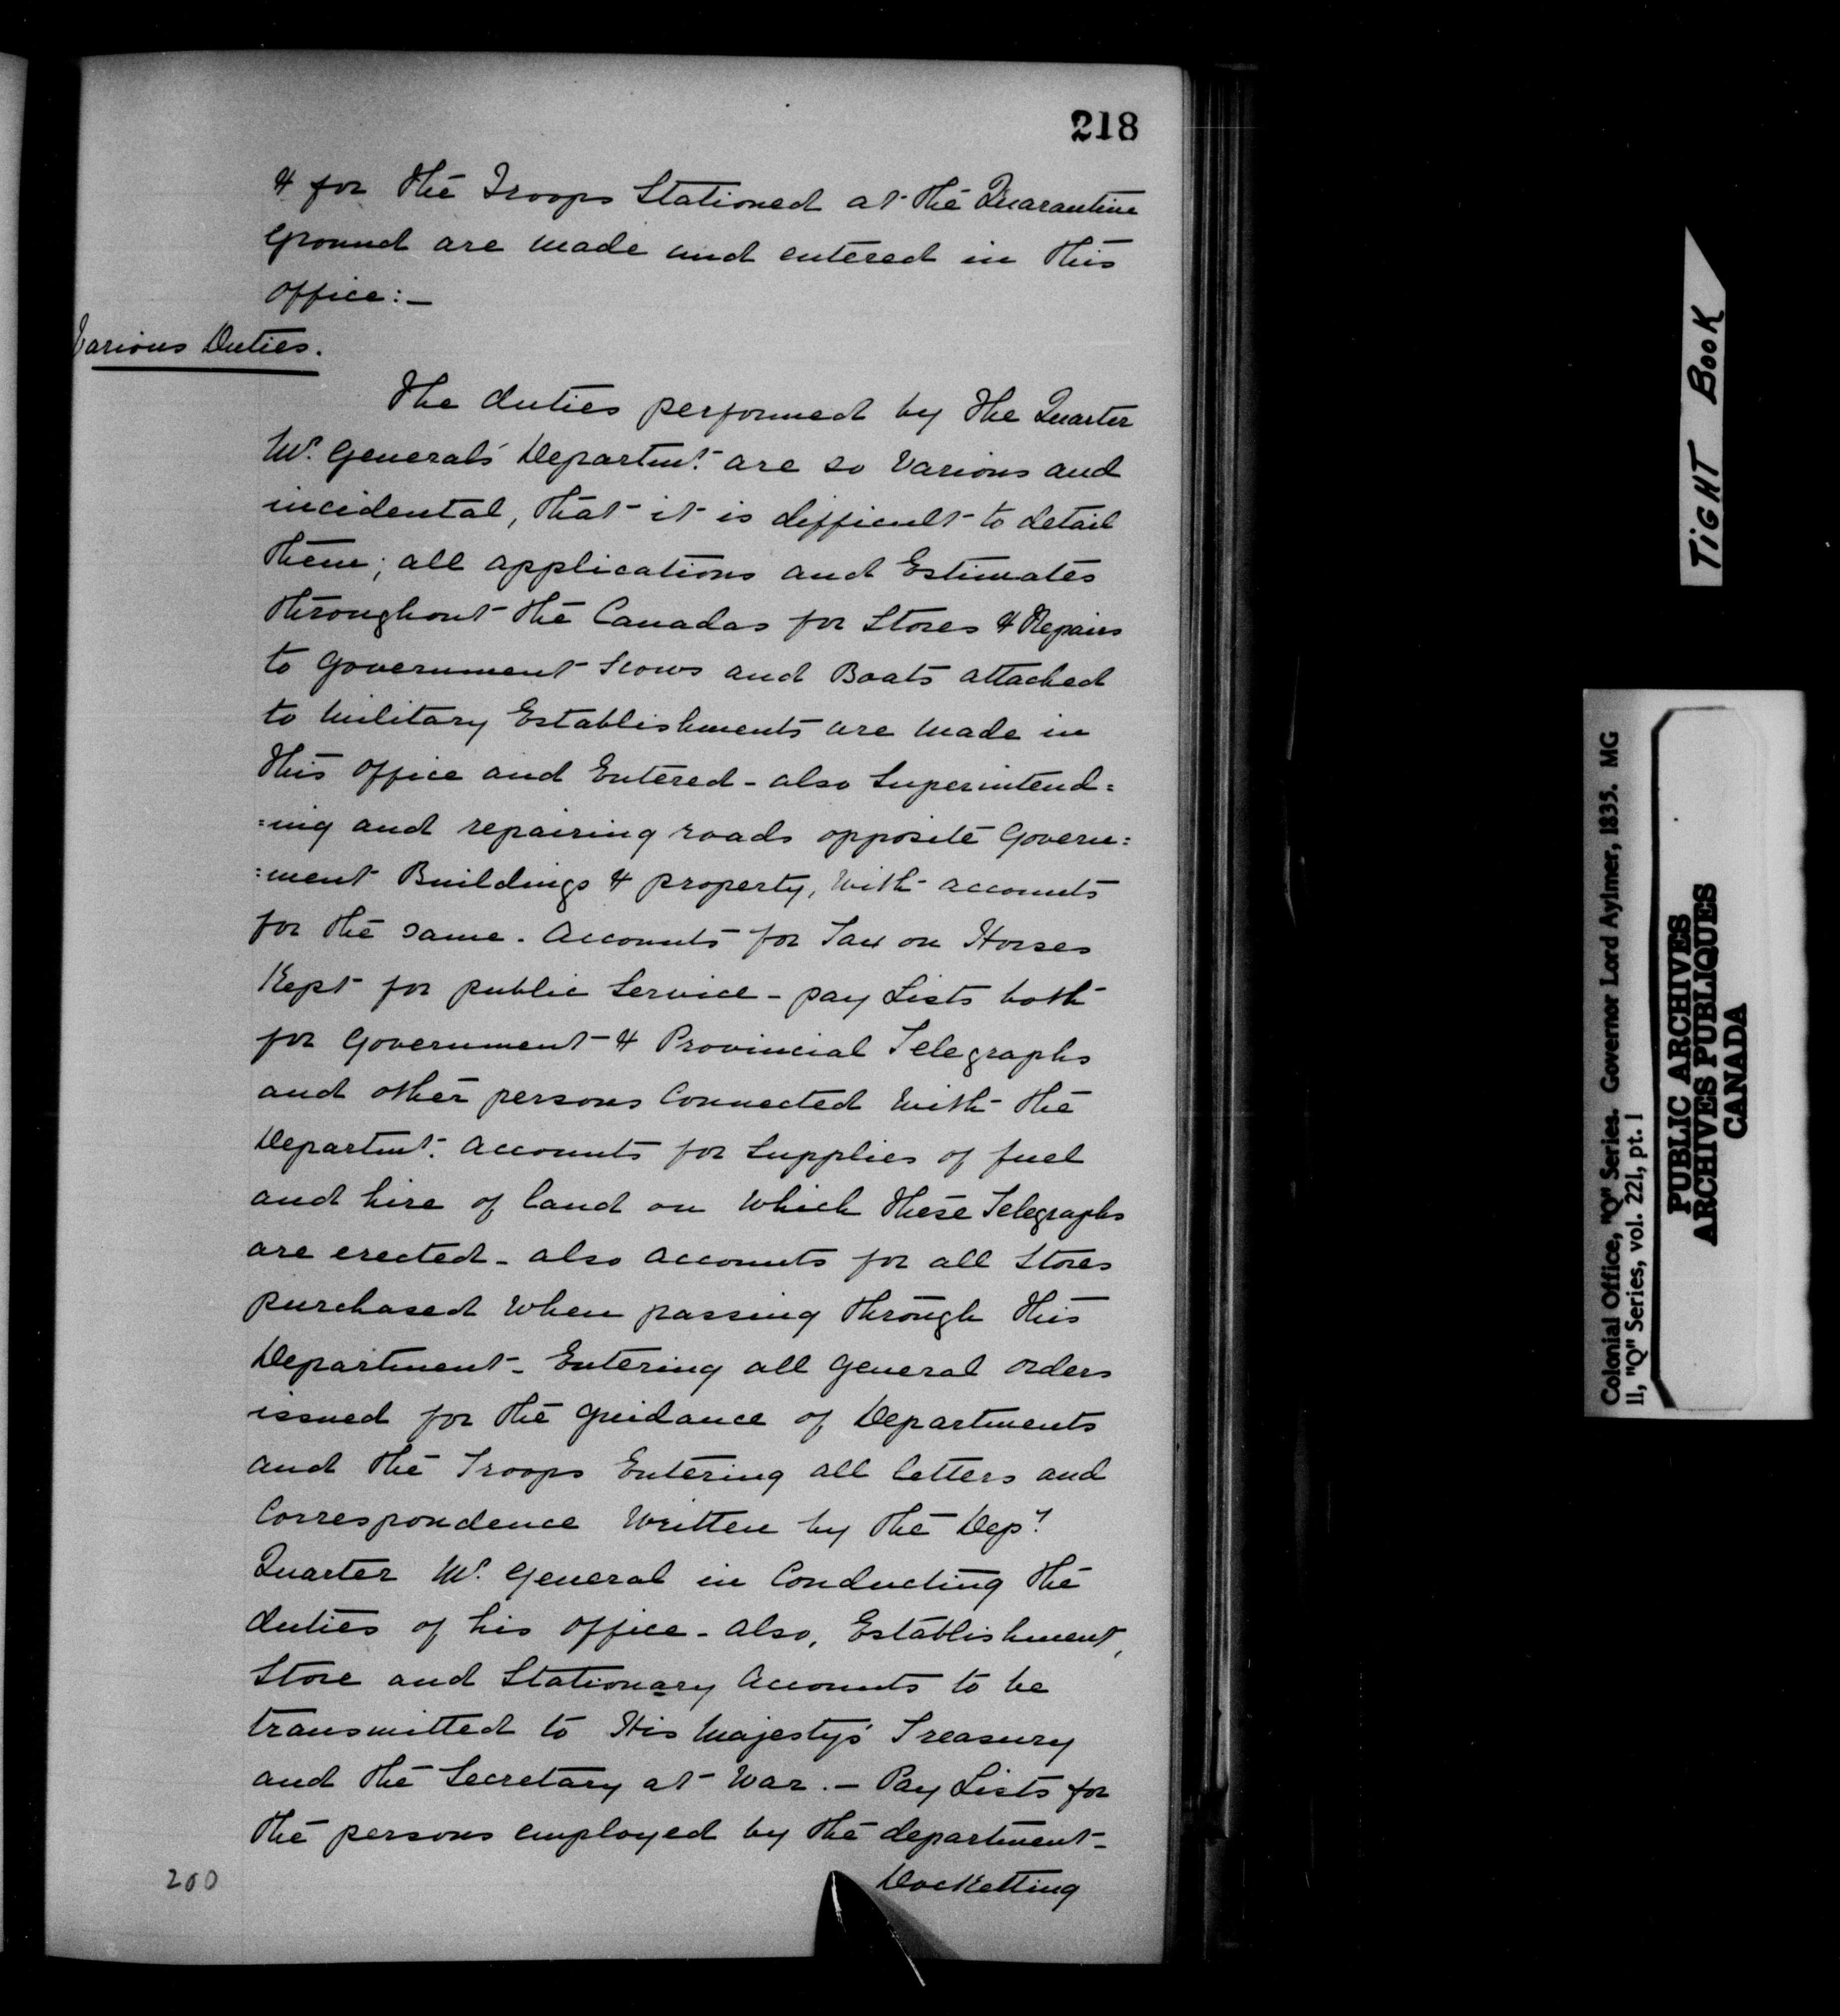 218
& for the Troops Stationed at the Quarantine
Ground are made and entered in this
office:—
Various Duties.
The duties performed by the Quarter
Mr. General's Departmt. are so various and
incidental, that it is difficult to detail
them; all applications and Estimates
throughout the Canadas for Stores & Repairs
to Government Scows and Boats attached
to Military Establishments are made in
this office and Entered - also Superintend=
=ing and repairing roads opposite Govern=
=ment Buildings & property, with accounts
for the same. Accounts for Tax on Horses
Kept for public Service - pay Lists both
for Government & Provincial Telegraphs
and other persons Connected with the
Departmt. Accounts for Supplies of fuel
and hire of land on which these Telegraphs
are erected - also accounts for all Stores
purchased when passing through this
Department - Entering all General orders
issued for the guidance of Departments
and the Troops Entering all letters and
Correspondence written by the Depy.
Quarter Mr. General in Conducting the
duties of his office - also, Establishment,
Store and Stationary Accounts to be
transmitted to His Majesty's Treasury
and the Secretary at War. — Pay Lists for
the persons employed by the department -
Docketting
200
TIGHT BOOK
Colonial Office, "Q" Series. Governor Lord Aylmer, 1835. MG
11, "Q" Series, vol. 221, pt. 1
PUBLIC ARCHIVES
ARCHIVES PUBLIQUES
CANADA